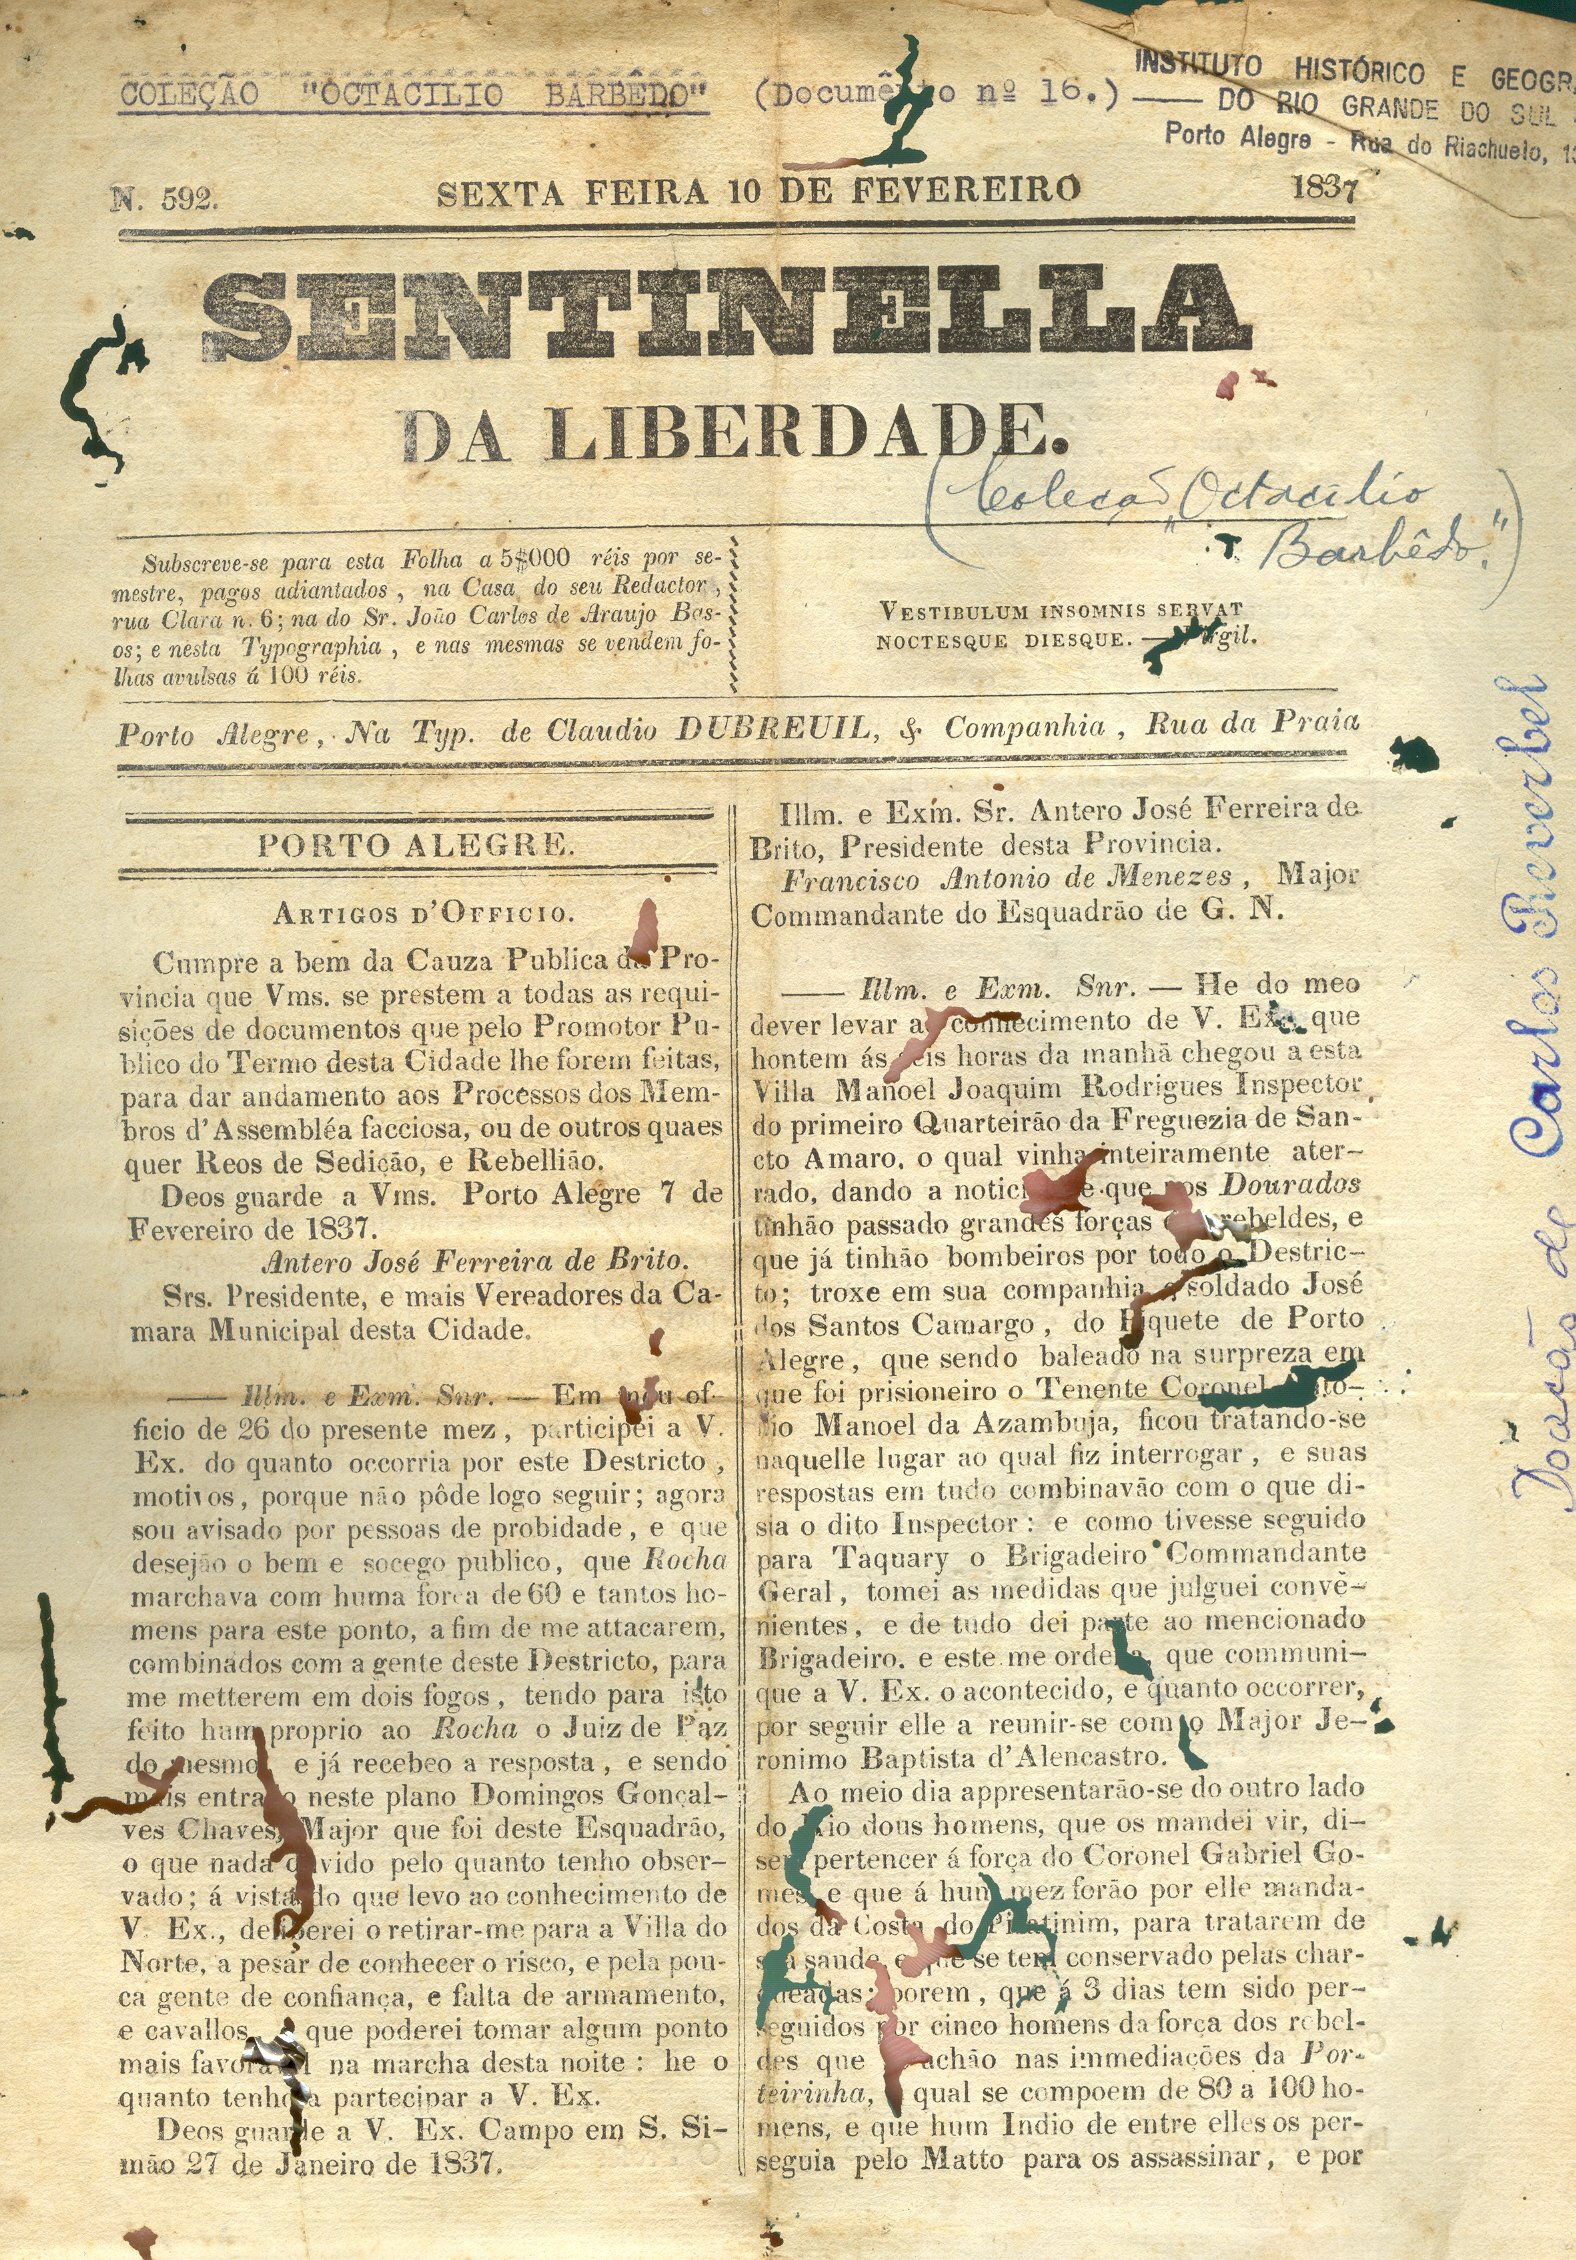 COLEÇÃO "OCTACILIO BARBÊDO" (Documento nº 16.)
INSTITUTO HISTÓRICO E GEOGR
DO RIO GRANDE DO SUL
Porto Alegre - Rua do Riachuelo, 13
N. 592. SEXTA FEIRA 10 DE FEVEREIRO 1837
SENTINELLA
DA LIBERDADE.
(Coleção "Octacílio
Barbêdo.")
Subscreve-se para esta Folha a 5$000 réis por se-
mestre, pagos adiantados, na Casa do seu Redactor,
rua Clara n. 6; na do Sr. João Carlos de Araujo Bas-
os; e nesta Typographia, e nas mesmas se vendem fo-
lhas avulsas á 100 réis.
VESTIBULUM INSOMNIS SERVAT
NOCTESQUE DIESQUE. — Virgil.
Porto Alegre, Na Typ. de Claudio DUBREUIL, & Companhia, Rua da Praia
Doação de Carlos Reverbel
PORTO ALEGRE.
ARTIGOS D'OFFICIO.
Cumpre a bem da Cauza Publica da Pro-
vincia que Vms. se prestem a todas as requi-
sições de documentos que pelo Promotor Pu-
blico do Termo desta Cidade lhe forem feitas,
para dar andamento aos Processos dos Mem-
bros d'Assembléa facciosa, ou de outros quaes
quer Reos de Sedição, e Rebellião.
Deos guarde a Vms. Porto Alegre 7 de
Fevereiro de 1837.
Antero José Ferreira de Brito.
Srs. Presidente, e mais Vereadores da Ca-
mara Municipal desta Cidade.
—— Illm. e Exm. Snr. — Em meu of-
ficio de 26 do presente mez, participei a V.
Ex. do quanto occorria por este Destricto,
motivos, porque não pôde logo seguir; agora
sou avisado por pessoas de probidade, e que
desejão o bem e socego publico, que Rocha
marchava com huma força de 60 e tantos ho-
mens para este ponto, a fim de me attacarem,
combinados com a gente deste Destricto, para
me metterem em dois fogos, tendo para isto
feito hum proprio ao Rocha o Juiz de Paz
do mesmo, e já recebeo a resposta, e sendo
mais entrado neste plano Domingos Gonçal-
ves Chaves, Major que foi deste Esquadrão,
o que nada duvido pelo quanto tenho obser-
vado; á vista do que levo ao conhecimento de
V. Ex., deliberei o retirar-me para a Villa do
Norte, a pesar de conhecer o risco, e pela pou-
ca gente de confiança, e falta de armamento,
e cavallos que poderei tomar algum ponto
mais favoravel na marcha desta noite: he o
quanto tenho a partecipar a V. Ex.
Deos guarde a V. Ex. Campo em S. Si-
mão 27 de Janeiro de 1837.
Illm. e Exm. Sr. Antero José Ferreira de
Brito, Presidente desta Provincia.
Francisco Antonio de Menezes, Major
Commandante do Esquadrão de G. N.
—— Illm. e Exm. Snr. — He do meo
dever levar ao conhecimento de V. Ex. que
hontem ás seis horas da manhã chegou a esta
Villa Manoel Joaquim Rodrigues Inspector
do primeiro Quarteirão da Freguezia de San-
cto Amaro, o qual vinha inteiramente ater-
rado, dando a noticia de que nos Dourados
tinhão passado grandes forças rebeldes, e
que já tinhão bombeiros por todo o Destric-
to; troxe em sua companhia o soldado José
dos Santos Camargo, do Piquete de Porto
Alegre, que sendo baleado na surpreza em
que foi prisioneiro o Tenente Coronel Anto-
nio Manoel da Azambuja, ficou tratando-se
naquelle lugar ao qual fiz interrogar, e suas
respostas em tudo combinavão com o que di-
sia o dito Inspector: e como tivesse seguido
para Taquary o Brigadeiro Commandante
Geral, tomei as medidas que julguei convê-
nientes, e de tudo dei parte ao mencionado
Brigadeiro, e este me ordena, que communi-
que a V. Ex. o acontecido, e quanto occorrer,
por seguir elle a reunir-se com o Major Je-
ronimo Baptista d'Alencastro.
Ao meio dia appresentarão-se do outro lado
do Rio dous homens, que os mandei vir, di-
sem pertencer á força do Coronel Gabriel Go-
mes, e que á hum mez forão por elle manda-
dos da Costa do Piratinim, para tratarem de
sua saude, e que se tem conservado pelas char-
queadas; porem, que á 3 dias tem sido per-
seguidos por cinco homens da força dos rebel-
des que achão nas immediações da Por-
teirinha, o qual se compoem de 80 a 100 ho-
mens, e que hum Indio de entre elles os per-
seguia pelo Matto para os assassinar, e por